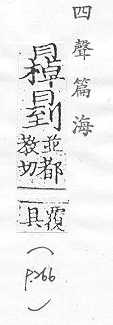 四聲篇海
並都
教切
覆
具
(p.266)